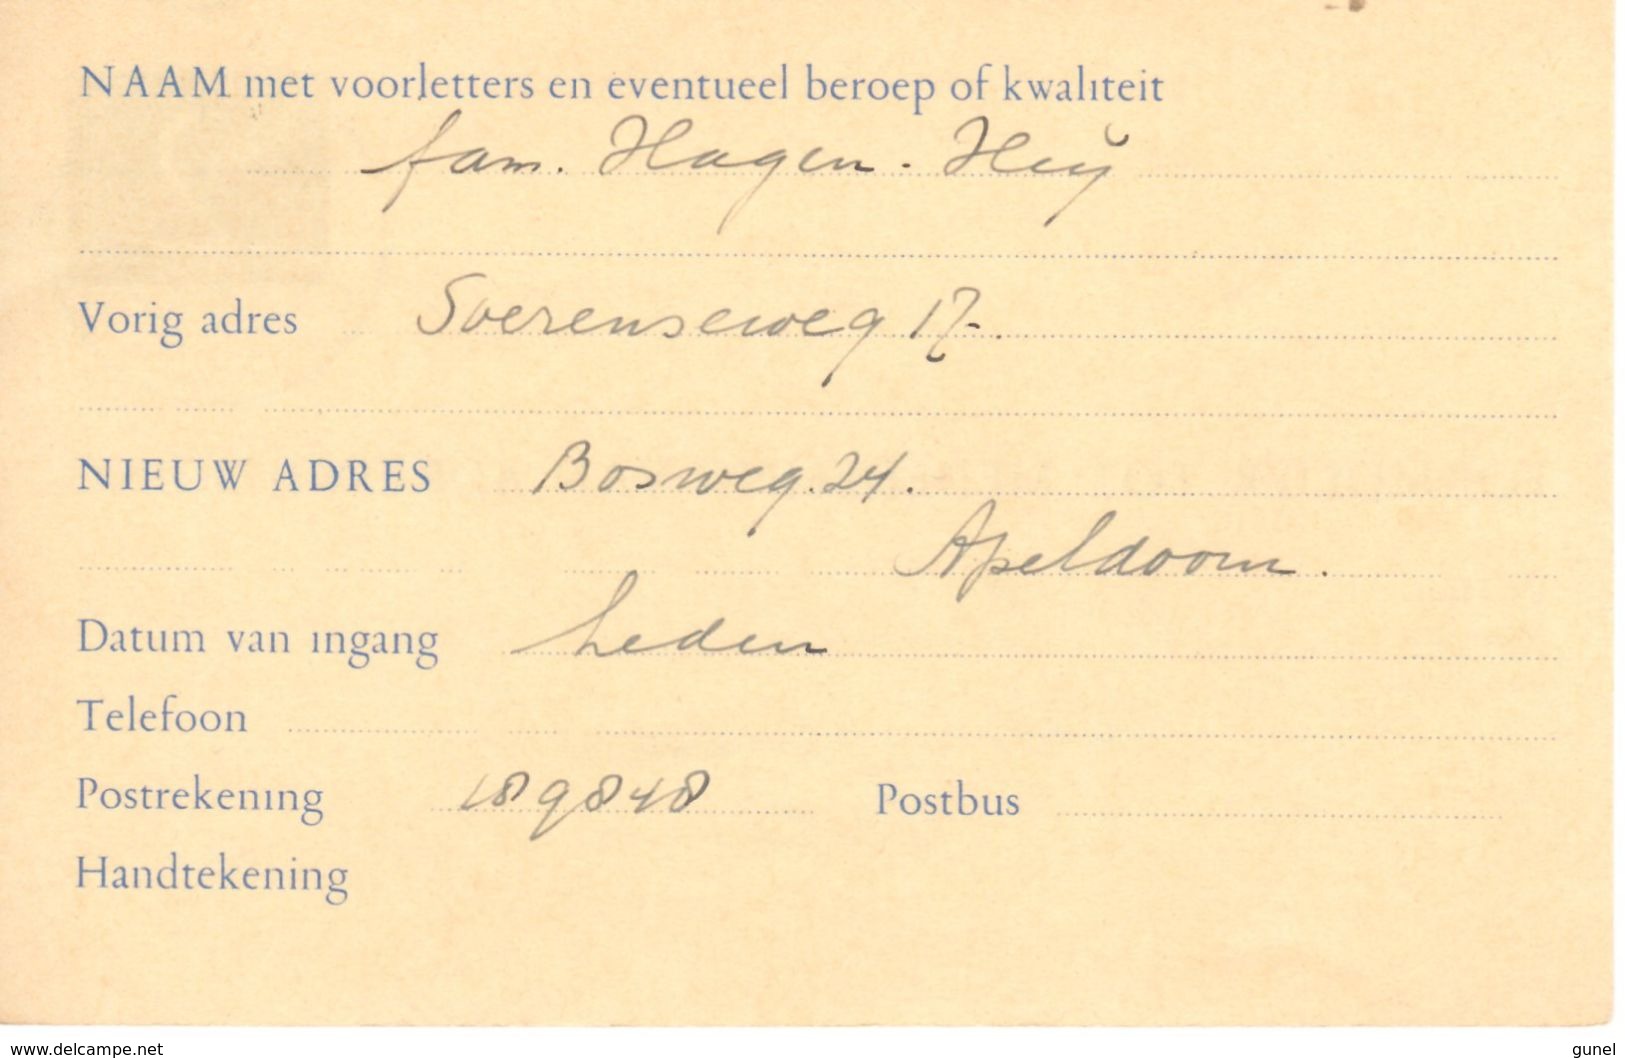 NAAM met voorletters en eventueel beroep of kwaliteit
fam. Hagen - Heij
Vorig adres Soerenseweg 17.
NIEUW ADRES Bosweg 24.
Apeldoorn.
Datum van ingang heden
Telefoon
Postrekening 189848 Postbus
Handtekening
www.delcampe.net gunel